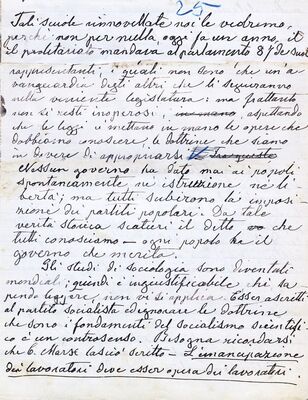 25
Tali scuole rinnovellate noi le vedremo,
perchè non per nulla oggi fa un anno, il
proletariato mandava al parlamento 87 de' suoi
rappresentanti, i quali non sono che un'a
vanguardia degli altri che li seguiranno
nella ventente legislatura: ma frattanto
non si resti inoperosi, aspettando
che le leggi ci mettano in mano le opere che
dobbiamo conoscere, le dottrine che siamo
in dovere di appropriarsi
Nissun governo ha dato mai ai popoli
spontaneamente nè istruzione nè li
bertà; ma tutti subirono la imposi
zione dei partiti popolari. Da tale
verità storica scaturì il detto che
tutti conosciamo — ogni popolo ha il
governo che merita.
Gli studi di sociologia sono diventati
mondiali; quindi è ingiustificabile chi sa
pendo leggere, non vi si applica. Esser ascritti
al partito socialista ed ignorare le dottrine
che sono i fondamenti del socialismo scientifi
co è un controsenso. Bisogna ricordarsi
che C. Marx lasciò scritto — L'emancipazione
dei lavoratori deve esser opera dei lavoratori.